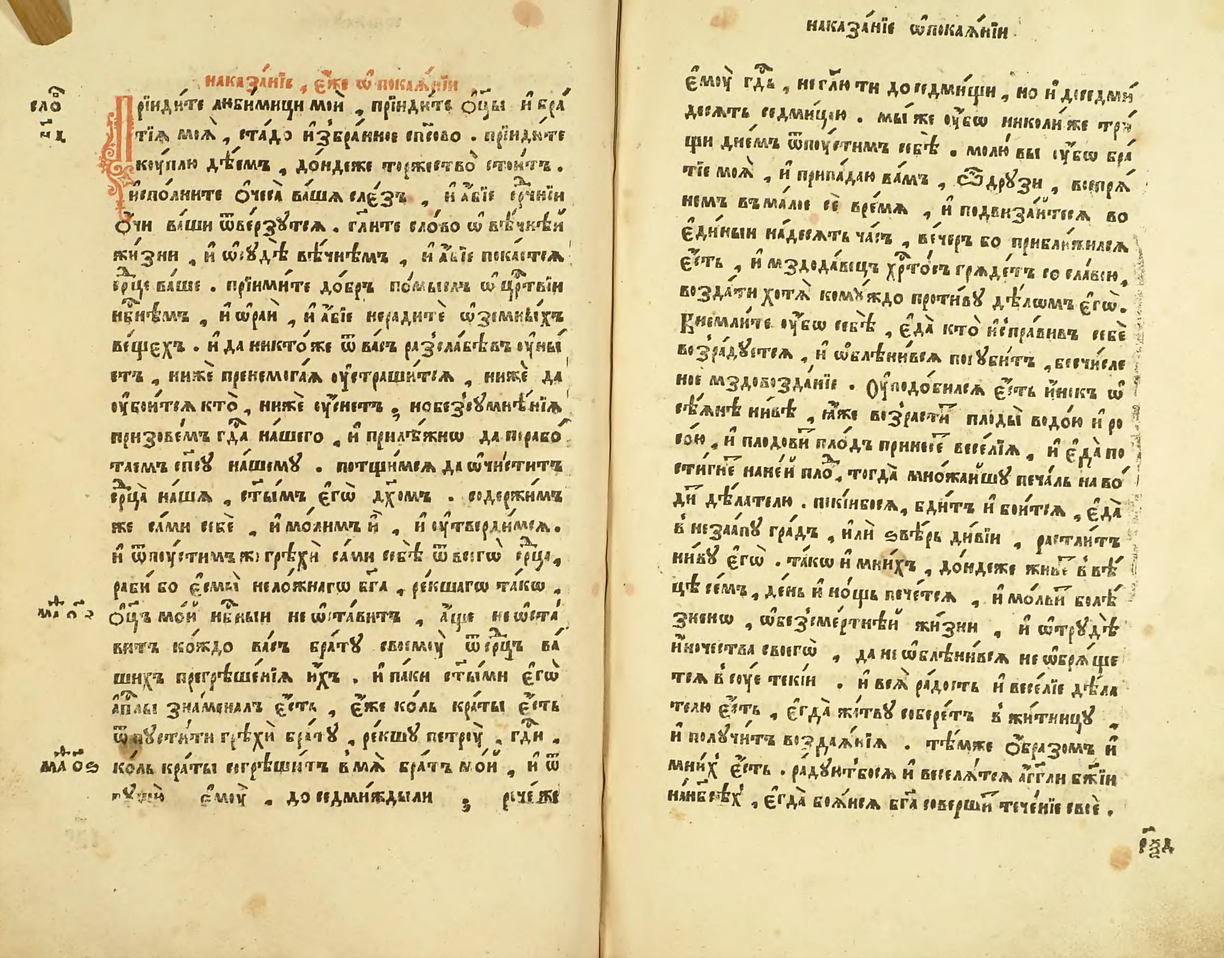 наказа́нїе , є҆́же ѡ҆ покаѧ́нїи
сло́
н҃д
Прїиди́те люби́мицы мои̑ , прїиди́те ѻ҆ц҃ы и҆ бра́
тїѧ моѧ̑ , ста́до и҆збра́нное сп҃сово . прїиди́те
кꙋ́плю дѣ́емъ , до́ндеже торжество̀ стои́тъ .
и҆спо́лните ѻ҆чеса̀ ва́ша сле́зъ , и҆ а҆́бїе се́рдчнїи
ѻ҆́чи ва́ши ѿве́рзꙋтсѧ . гл҃ите сло́во ѡ҆ вѣ́чнѣй
жи́зни , и҆ ѡ҆сꙋдѣ̀ вѣ́чнѣмъ , и҆ а҆́бїе пока́етсѧ
ср҃це ва́ше . прїими́те до́бръ по́мыслъ ѡ҆ цр҃твїи
нб҃нѣмъ , и҆ ѡ҆раи , и҆ а҆́бїе неради́те ѡ҆земны́хъ
ве́щехъ . и҆ да никто́же ѿ ва́съ разсла́бѣвъ ᲂу҆ны́
етъ , нижѐ пренемога́ѧ ᲂу҆страши́тсѧ , нижѐ да
ᲂу҆бои́тсѧ кто̀ , нижѐ ᲂу҆́снетъ , но без̾сꙋмнѣ́нїѧ
призове́мъ гд҃а на́шего , и҆ прилѣ́жнѡ да порабо́
таемъ сп҃сꙋ на́шемꙋ . потщи́мсѧ да ѡ҆чи́ститъ
ср҃ца̀ на́ша , ст҃ы́мъ є҆гѡ̀ дх҃омъ . содержи́мъ
же са́ми себѐ , и҆ мо́лимъ и҆̀ , и҆ ᲂу҆тверди́мсѧ .
и҆ ѿпꙋ́стимъ же грѣхѝ са́ми себѣ̀ ѿ всегѡ̀ се́рдца ,
раби́ бо є҆смы̀ нело́жнагѡ бг҃а , ре́кшагѡ та́кѡ ,
ѻ҆ц҃ъ мо́й нб҃ныи не ѡ҆ста́витъ , а҆́ще не ѡ҆ста́
витъ ко́ждо ва́съ бра́тꙋ своемꙋ̀ ѿ се́рдцъ ва́
шихъ прегрѣше́нїѧ и҆́хъ . и҆ па́ки ст҃ы́ми є҆гѡ̀
а҆пⷭ҇лы зна́меналъ є҆́сть , є҆́же ко́ль кра́ты є҆́сть
ѿпꙋсти́ти грѣхѝ бра́тꙋ , ре́кшꙋ петрꙋ̀ , гд҃и ,
ко́ль кра́ты согрѣши́тъ в̾ мѧ̀ бра́тъ мо́й , и҆ ѿ
пꙋщꙋ̀ є҆мꙋ̀ , до седми́жды ли , рече́ же
маѳ
маѳ ѻ҃ѕ
наказа́нїе ѡ҆покаѧ́нїи
є҆мꙋ̀ гд҃ь , не гл҃ю ти до седми́щи , но и҆ до седми́
десѧтъ седмицею . мы́ же ᲂу҆́бѡ николи́же трѝ
щи дне́мъ ѿпꙋ́стимъ себѣ̀ . молю́ вы ᲂу҆́бѡ бра́
тїе моѧ̑ , и҆ припа́даю ва́мъ , ѽ дрꙋзи , воспрѧ́
немъ в̾ ма́лое сѐ вре́мѧ , и҆ подвиза́йтесѧ во
є҆ди́ныи на́десѧть ча́съ , ве́черъ бо прибли́жилсѧ
є҆́сть , и҆ мздода́вецъ хрⷭ҇то́съ грѧде́тъ со сла́вою ,
возда́ти хотѧ̀ комꙋ́ждо проти́вꙋ дѣ́лѡмъ є҆гѡ̀ .
Внемли́те ᲂу҆́бѡ себѣ̀ , є҆да̀ кто̀ и҆спра́вивъ себѐ
возра́дꙋетсѧ , и҆ ѡ҆блѣни́всѧ погꙋби́тъ , бесчи́сле
ное мздовозда́нїе . ᲂу҆подо́билсѧ є҆́сть и҆́нокъ ѡ҆
сѣ́ѧнѣ ни́вѣ , ꙗ҆́же возрасти̑ плоды̀ водо́ю и҆ ро
со́ю , и҆ плодови̑ пло́дъ принесѐ весе́лїѧ , и҆ є҆гда̀ по
сти́гнє на не́й пло́ , тогда̀ мно́жайшꙋ печа́ль на во́
дитъ дѣ́лателю . пекі́йбосѧ , бди́тъ и҆ бои́тсѧ , є҆да̀
в̾ незаа́пꙋ гра́дъ , и҆лѝ ѕвѣ́рь ди́вїи , растли́тъ
ни́вꙋ є҆гѡ̀ . та́кѡ и҆ мни́хъ , до́ндеже живє в̾ вѣ́
цѣ се́мъ , де́нь и҆ но́щь пече́тсѧ , и҆ мо́льбы болѣ́
зненѡ , ѡ҆безсме́ртнѣй жи́зни , и҆ ѡ҆трꙋдѣ̀
и҆́ночества своегѡ̀ , да не ѡ҆блѣни́всѧ не ѡ҆брѧ́ще
тсѧ в̾ сꙋ́е теки́й . и҆ всѧ̀ ра́дость и҆ весе́лїе дѣ́ла
телю є҆́сть , є҆гда̀ жа́твꙋ собере́тъ в̾ жи́тницꙋ ,
и҆ полꙋ́читъ возда́ѧнїѧ . тѣ́мже ѻ҆́бразомъ и҆
мни́х̾ є҆́сть . ра́дꙋютбосѧ и҆ веселѧ́тсѧ а҆́гг҃ли бж҃їи
на нб҃сѣ́х̾ , є҆гда̀ боѧ́йсѧ бг҃а соверши̑ тече́нїе своѐ .
рѯ҃д